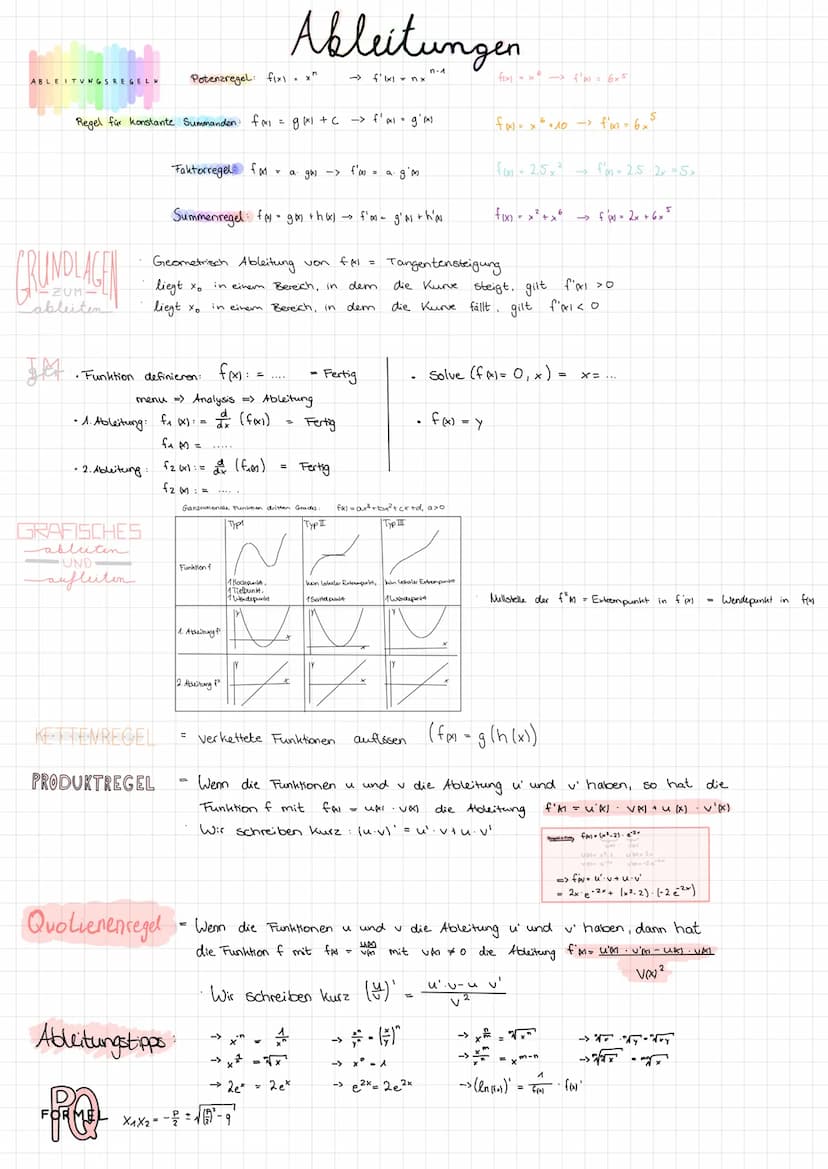 Ableitungen
ABLEITUNGSREGELN
Potenzregel: f(x) = xⁿ → f'(x) = nxⁿ⁻¹ f(x) = x⁶ → f'(x) = 6x⁵
Regel für konstante Summanden: f(x) = g(x) + c → f'(x) = g'(x) f(x) = x⁶ + 10 → f'(x) = 6x⁵
Faktorregel: f(x) = a · g(x) → f'(x) = a · g'(x) f(x) = 2,5x² → f'(x) = 2,5 · 2x = 5x
Summenregel: f(x) = g(x) + h(x) → f'(x) = g'(x) + h'(x) f(x) = x² + x⁶ → f'(x) = 2x + 6x⁵
GRUNDLAGEN
— ZUM —
ableiten
· Geometrisch Ableitung von f(x) = Tangentensteigung
· liegt x₀ in einem Bereich, in dem die Kurve steigt, gilt f'(x) > 0
· liegt x₀ in einem Bereich, in dem die Kurve fällt, gilt f'(x) < 0
· Funktion definieren: f(x) := .... = Fertig
menu => Analysis => Ableitung
· 1. Ableitung: f₁(x) := d/dx (f(x)) = Fertig
f₁(x) = .....
· 2. Ableitung: f₂(x) := d/dx (f₁(x)) = Fertig
f₂(x) := .....
· Solve (f(x) = 0, x) = x = ...
· f(x) = y
GRAFISCHES
ableiten
UND
aufleiten
Ganzrationale Funktion dritten Grades: f(x) = ax³ + bx² + cx + d, a>0
Typ I Typ II Typ III
Funktion f
1 Hochpunkt, kein lokaler Extrempunkt, kein lokaler Extrempunkt
1 Tiefpunkt,
1 Wendepunkt 1 Sattelpunkt 1 Wendepunkt
1. Ableitung f'
y x y x y x
2. Ableitung f''
y x y x y x
Nullstelle der f''(x) = Extrempunkt in f'(x) = Wendepunkt in f(x)
KETTENREGEL = verkettete Funktionen auflösen (f(x) = g(h(x))
PRODUKTREGEL = Wenn die Funktionen u und v die Ableitung u' und v' haben, so hat die
Funktion f mit f(x) = u(x) · v(x) die Ableitung f'(x) = u'(x) · v(x) + u(x) · v'(x)
· Wir schreiben kurz: (u·v)' = u'·v + u·v'
f(x) = (x²-2) · e⁻²ˣ
=> f'(x) = u'·v + u·v'
= 2x·e⁻²ˣ + (x²-2)·(-2e⁻²ˣ)
Quotienenregel = Wenn die Funktionen u und v die Ableitung u' und v' haben, dann hat
die Funktion f mit f(x) = u(x)/v(x) mit v(x) ≠ 0 die Ableitung f'(x) = u'(x) · v'(x) - u(x) · v(x) / v(x)²
· Wir schreiben kurz (u/v)' = u'·v-u v' / v²
Ableitungstipps:
→ x⁻ⁿ = 1/xⁿ → xⁿ/yⁿ = (x/y)ⁿ
→ x⁰ = 1 → xᵐ/xⁿ = xᵐ⁻ⁿ
→ 2eˣ = 2eˣ → e²ˣ = 2e²ˣ → (ln f(x))' = 1/f(x) · f(x)'
PQ
FORMEL
x₁x₂ = -p/2 ± √((p/2)² - q)